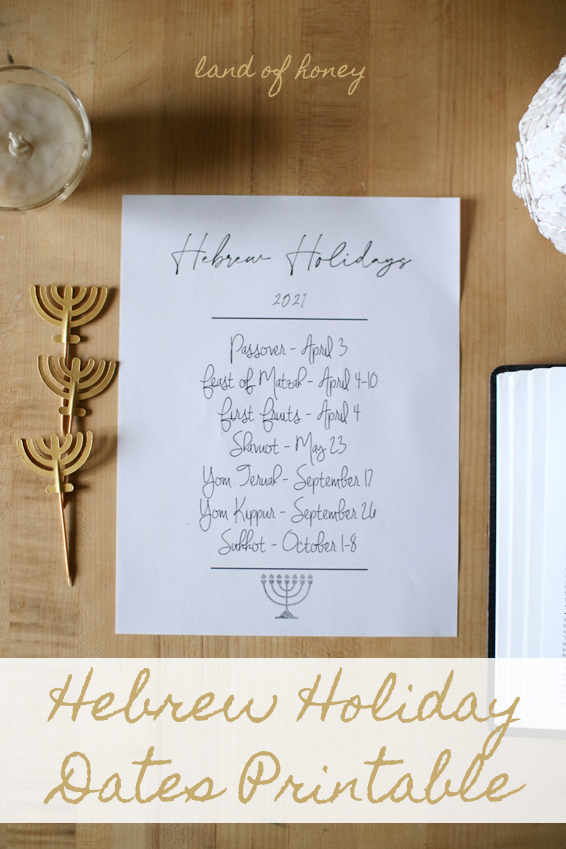 land of honey
Hebrew Holidays
2021
Passover - April 3
Feast of Matzah - April 4-10
First Fruits - April 4
Shavuot - May 23
Yom Teruah - September 17
Yom Kippur - September 26
Sukkot - October 1-8
Hebrew Holiday
Dates Printable